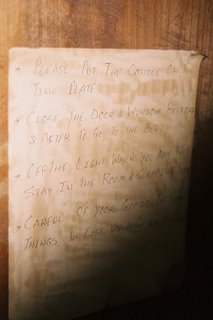 * PLEASE PUT THE CANDLE ON THE
TINE PLATE
* CLOSE THE DOOR & WINDOW BEFORE
& AFTER TO GO TO THE BED
* OFF THE LIGHT WHEN YOU ARE NOT
STAY IN THE ROOM & SLEEPING
* CAREFUL OF YOUR GOODS
THINGS